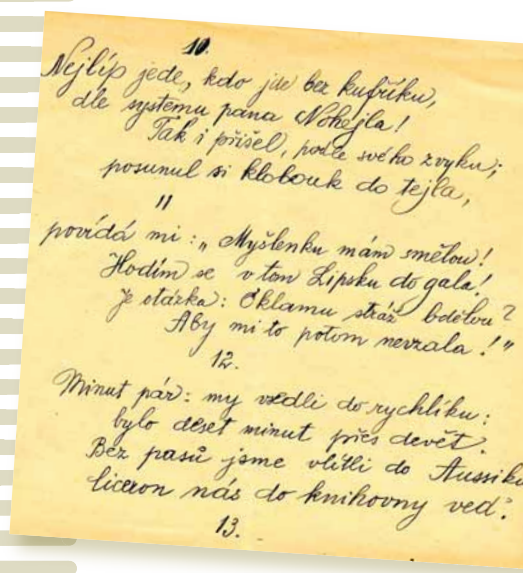 10.
Nejlíp jede, kdo jde bez kufříku,
dle systemu pana Nohejla!
Tak i přišel, podle svého zvyku;
posunul si klobouk do tejla,
11
povídá mi: „Myšlenku mám smělou!
Hodím se v tom Lipsku do gala!
Je otázka: Oklamu stráž bdělou?
Aby mi to potom nevzala!"
12.
Minut pár: my vsedli do rychlíku:
bylo deset minut přes devět.
Bez pasů jsme vlítli do Aussiku
ciceron nás do knihovny ved'.
13.